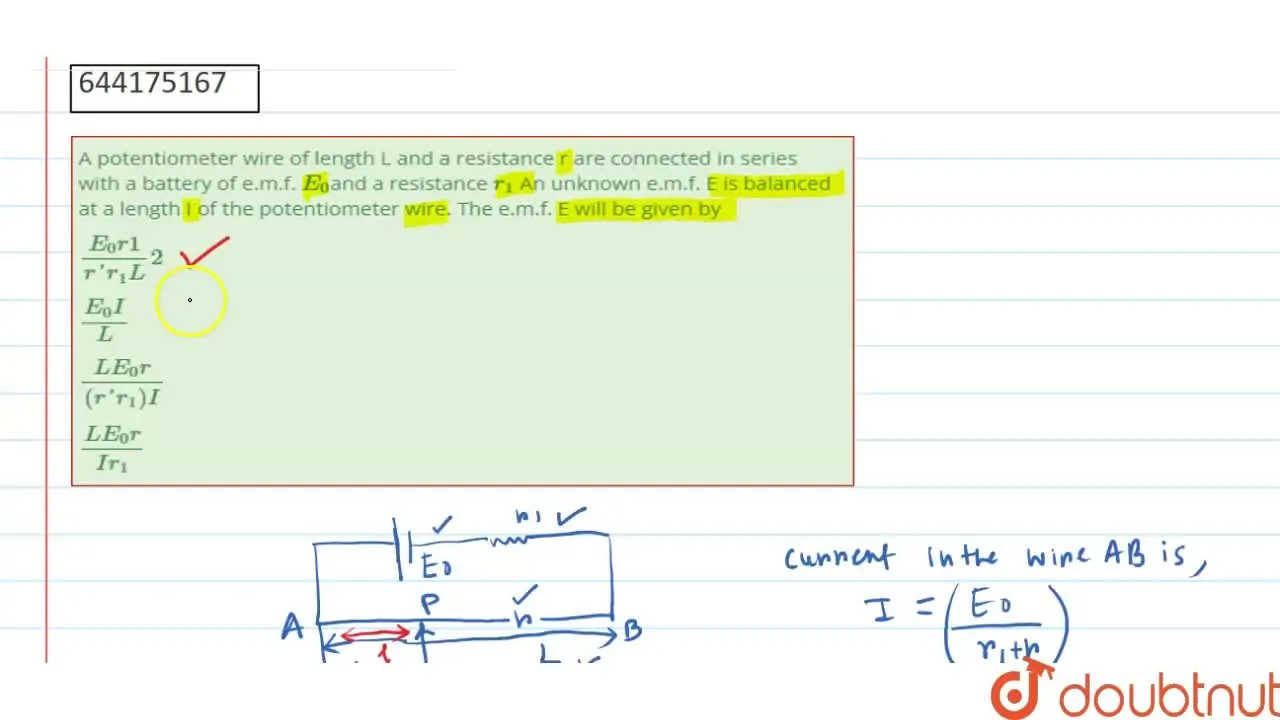 644175167
A potentiometer wire of length L and a resistance r are connected in series
with a battery of e.m.f. E₀ and a resistance r₁ An unknown e.m.f. E is balanced
at a length I of the potentiometer wire. The e.m.f. E will be given by
E₀r1 / r'r₁L 2
E₀I / L
LE₀r / (r'r₁)I
LE₀r / Ir₁
r₁
E₀
P
r
A
B
l
L
Current in the wire AB is,
I = (E₀ / r₁+r)
doubtnut